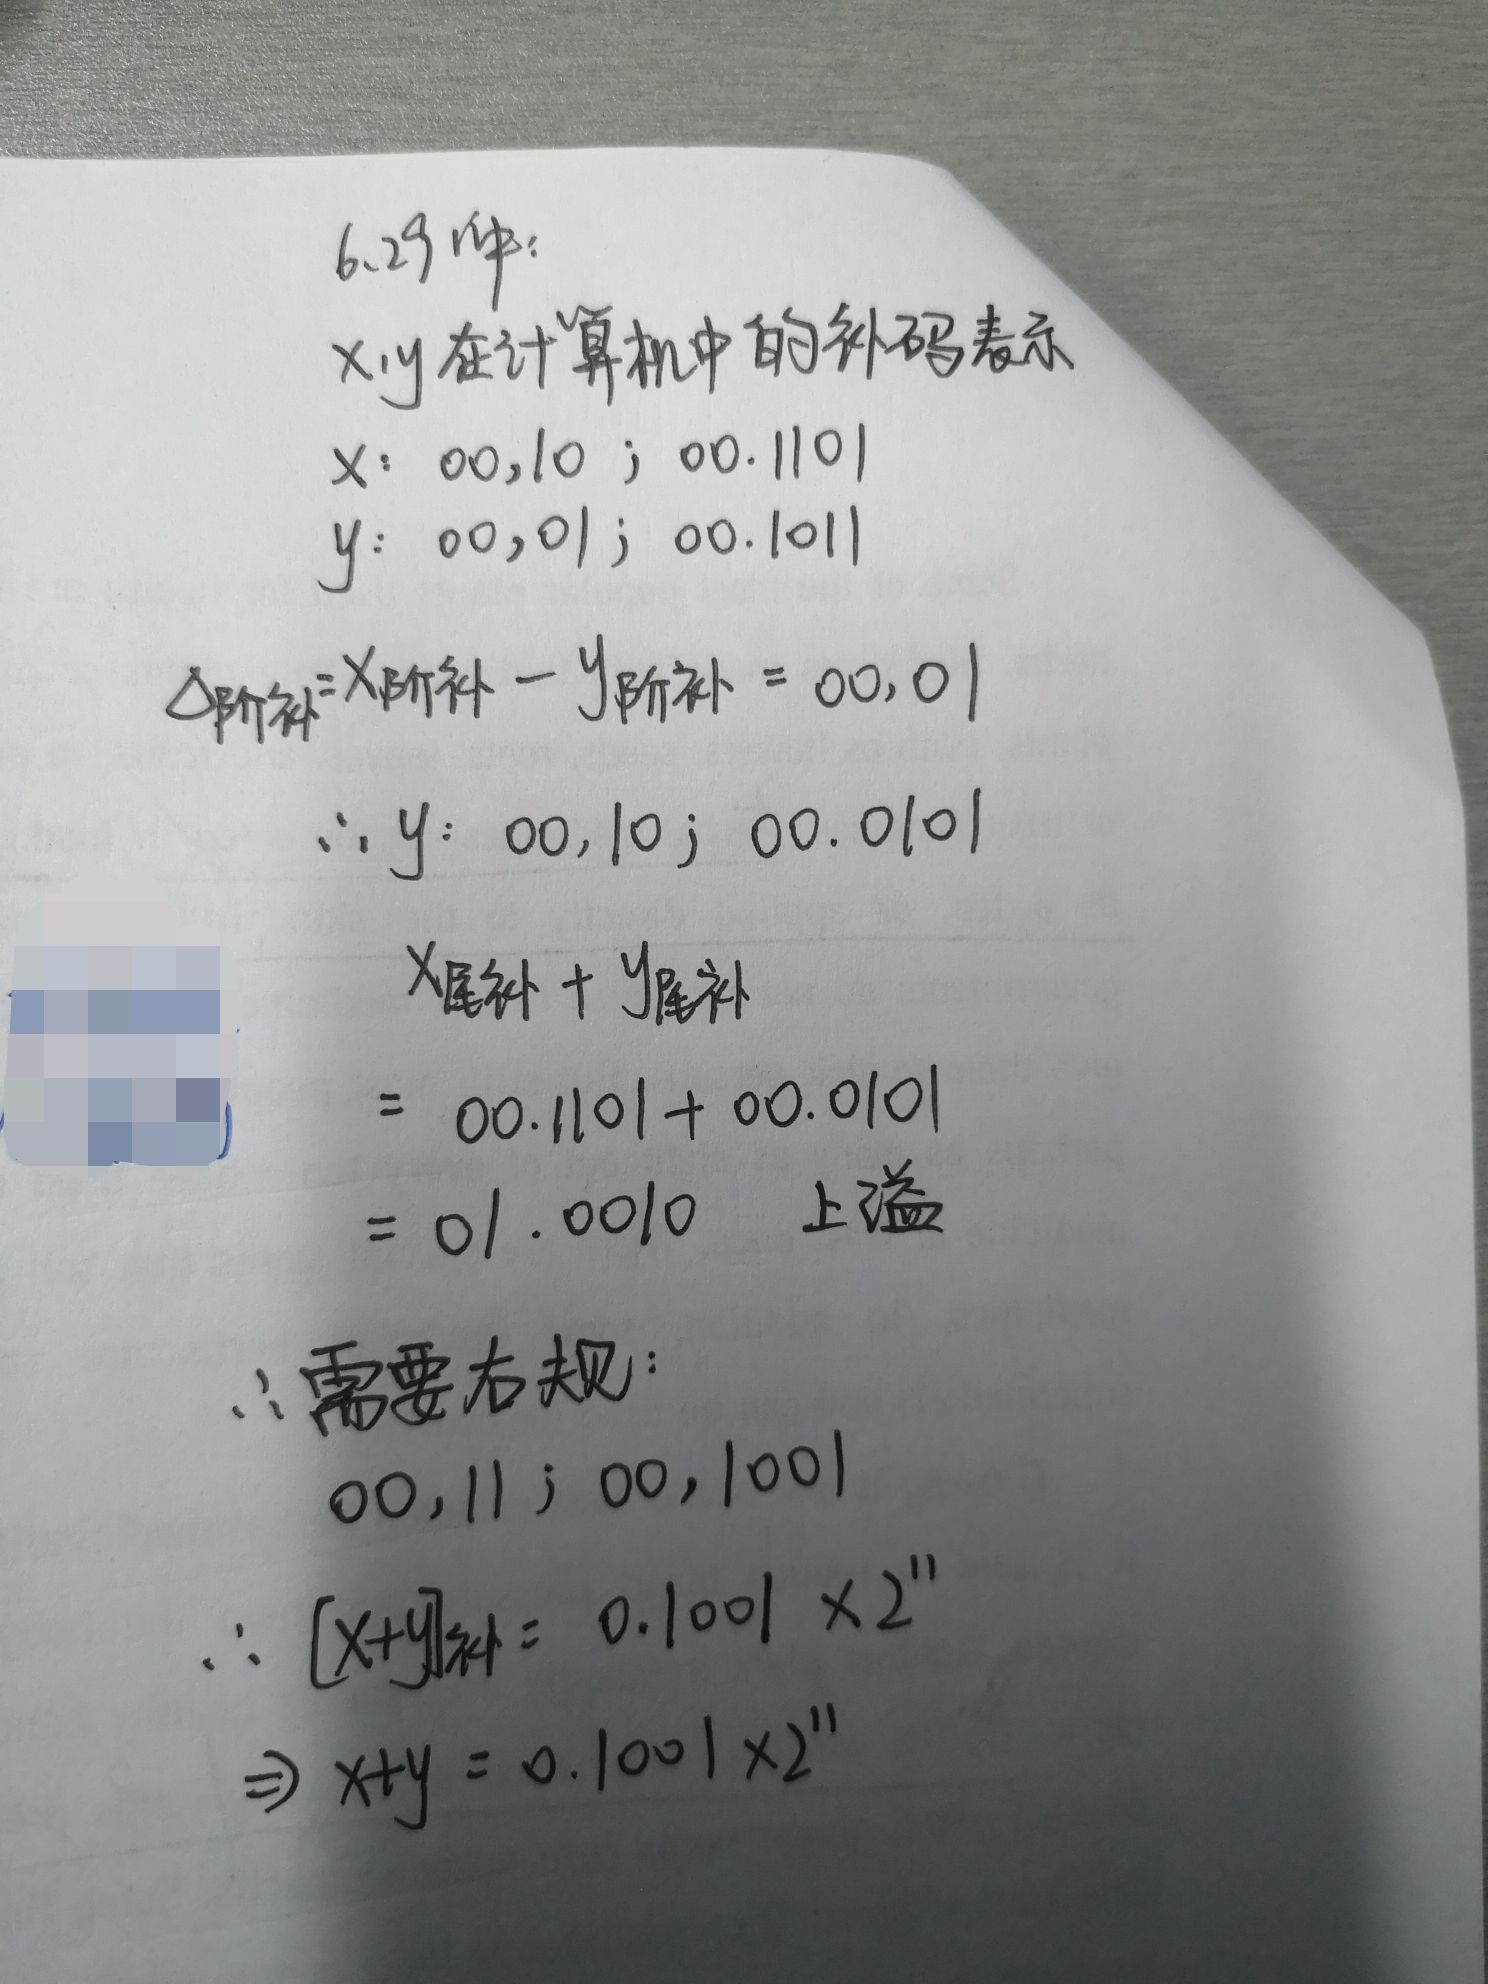 6.29 解:
x,y在计算机中的补码表示
x: 00,10 ; 00.1101
y: 00,01 ; 00.1011
Δ阶补=x阶补 - y阶补 = 00,01
∴ y: 00,10 ; 00.0101
x尾补 + y尾补
= 00.1101 + 00.0101
= 01.0010 上溢
∴需要右规:
00,11 ; 00,1001
∴ [x+y]补 = 0.1001 ×2¹¹
⇒ x+y = 0.1001 ×2¹¹